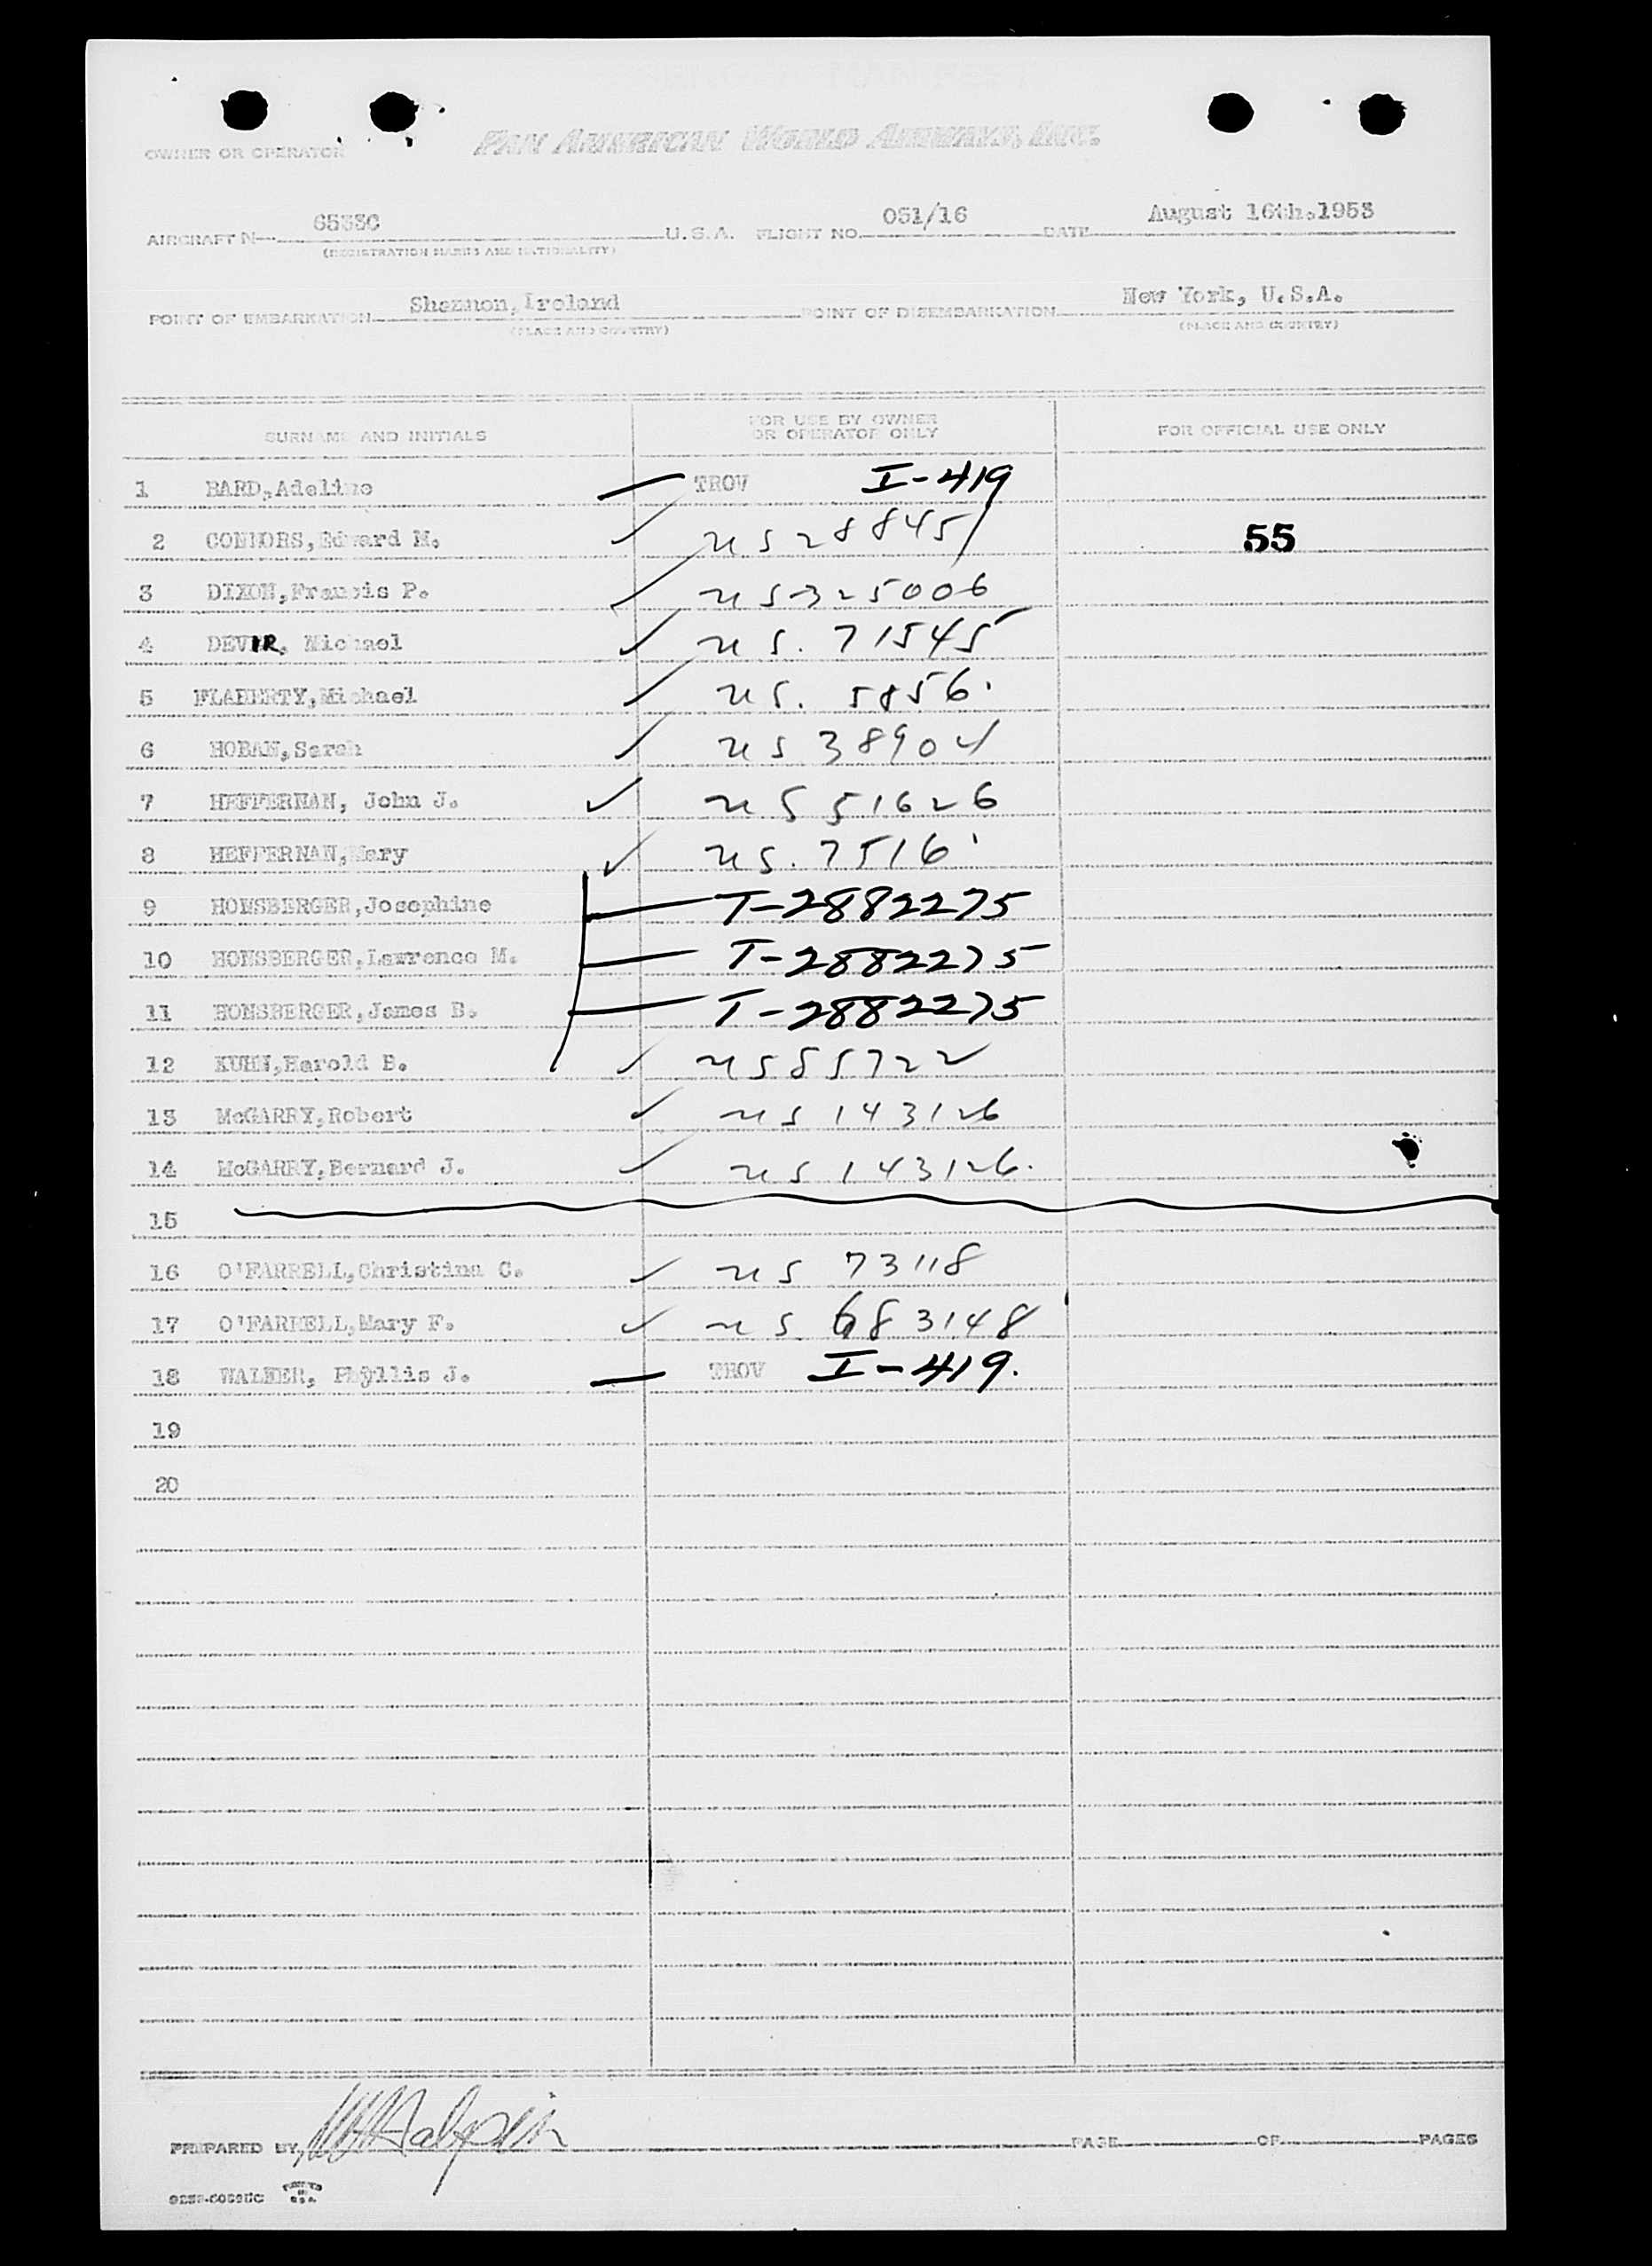 OWNER OR OPERATOR PAN AMERICAN WORLD AIRWAYS, INC.
AIRCRAFT N 6533C U.S.A. FLIGHT NO. 051/16 DATE August 16th.1953
(REGISTRATION MARKS AND NATIONALITY)
POINT OF EMBARKATION Shannon, Ireland POINT OF DISEMBARKATION New York, U.S.A.
(PLACE AND COUNTRY) (PLACE AND COUNTRY)
SURNAME AND INITIALS FOR USE BY OWNER OR OPERATOR ONLY FOR OFFICIAL USE ONLY
1 BARD, Adeline TROV I-419
2 CONNORS, Edward M. US 288451 55
3 DIXON, Francis P. US 325006
4 DEVIR, Michael US. 71545
5 FLAHERTY, Michael US. 5856.
6 HOBAN, Sarah US 38904
7 HEFFERNAN, John J. US 51626
8 HEFFERNAN, Mary US. 7516.
9 HONSBERGER, Josephine T-2882275
10 HONSBERGER, Lawrence M. T-2882275
11 HONSBERGER, James B. T-2882275
12 KUHN, Harold B. US 85722
13 McGARRY, Robert US 143126
14 McGARRY, Bernard J. US 143126.
15
16 O'FARRELL, Christina C. US 73118
17 O'FARRELL, Mary F. US 683148
18 WALKER, Phyllis J. TROV I-419.
19
20
PREPARED BY PAGE OF PAGES
PRINTED IN U.S.A.